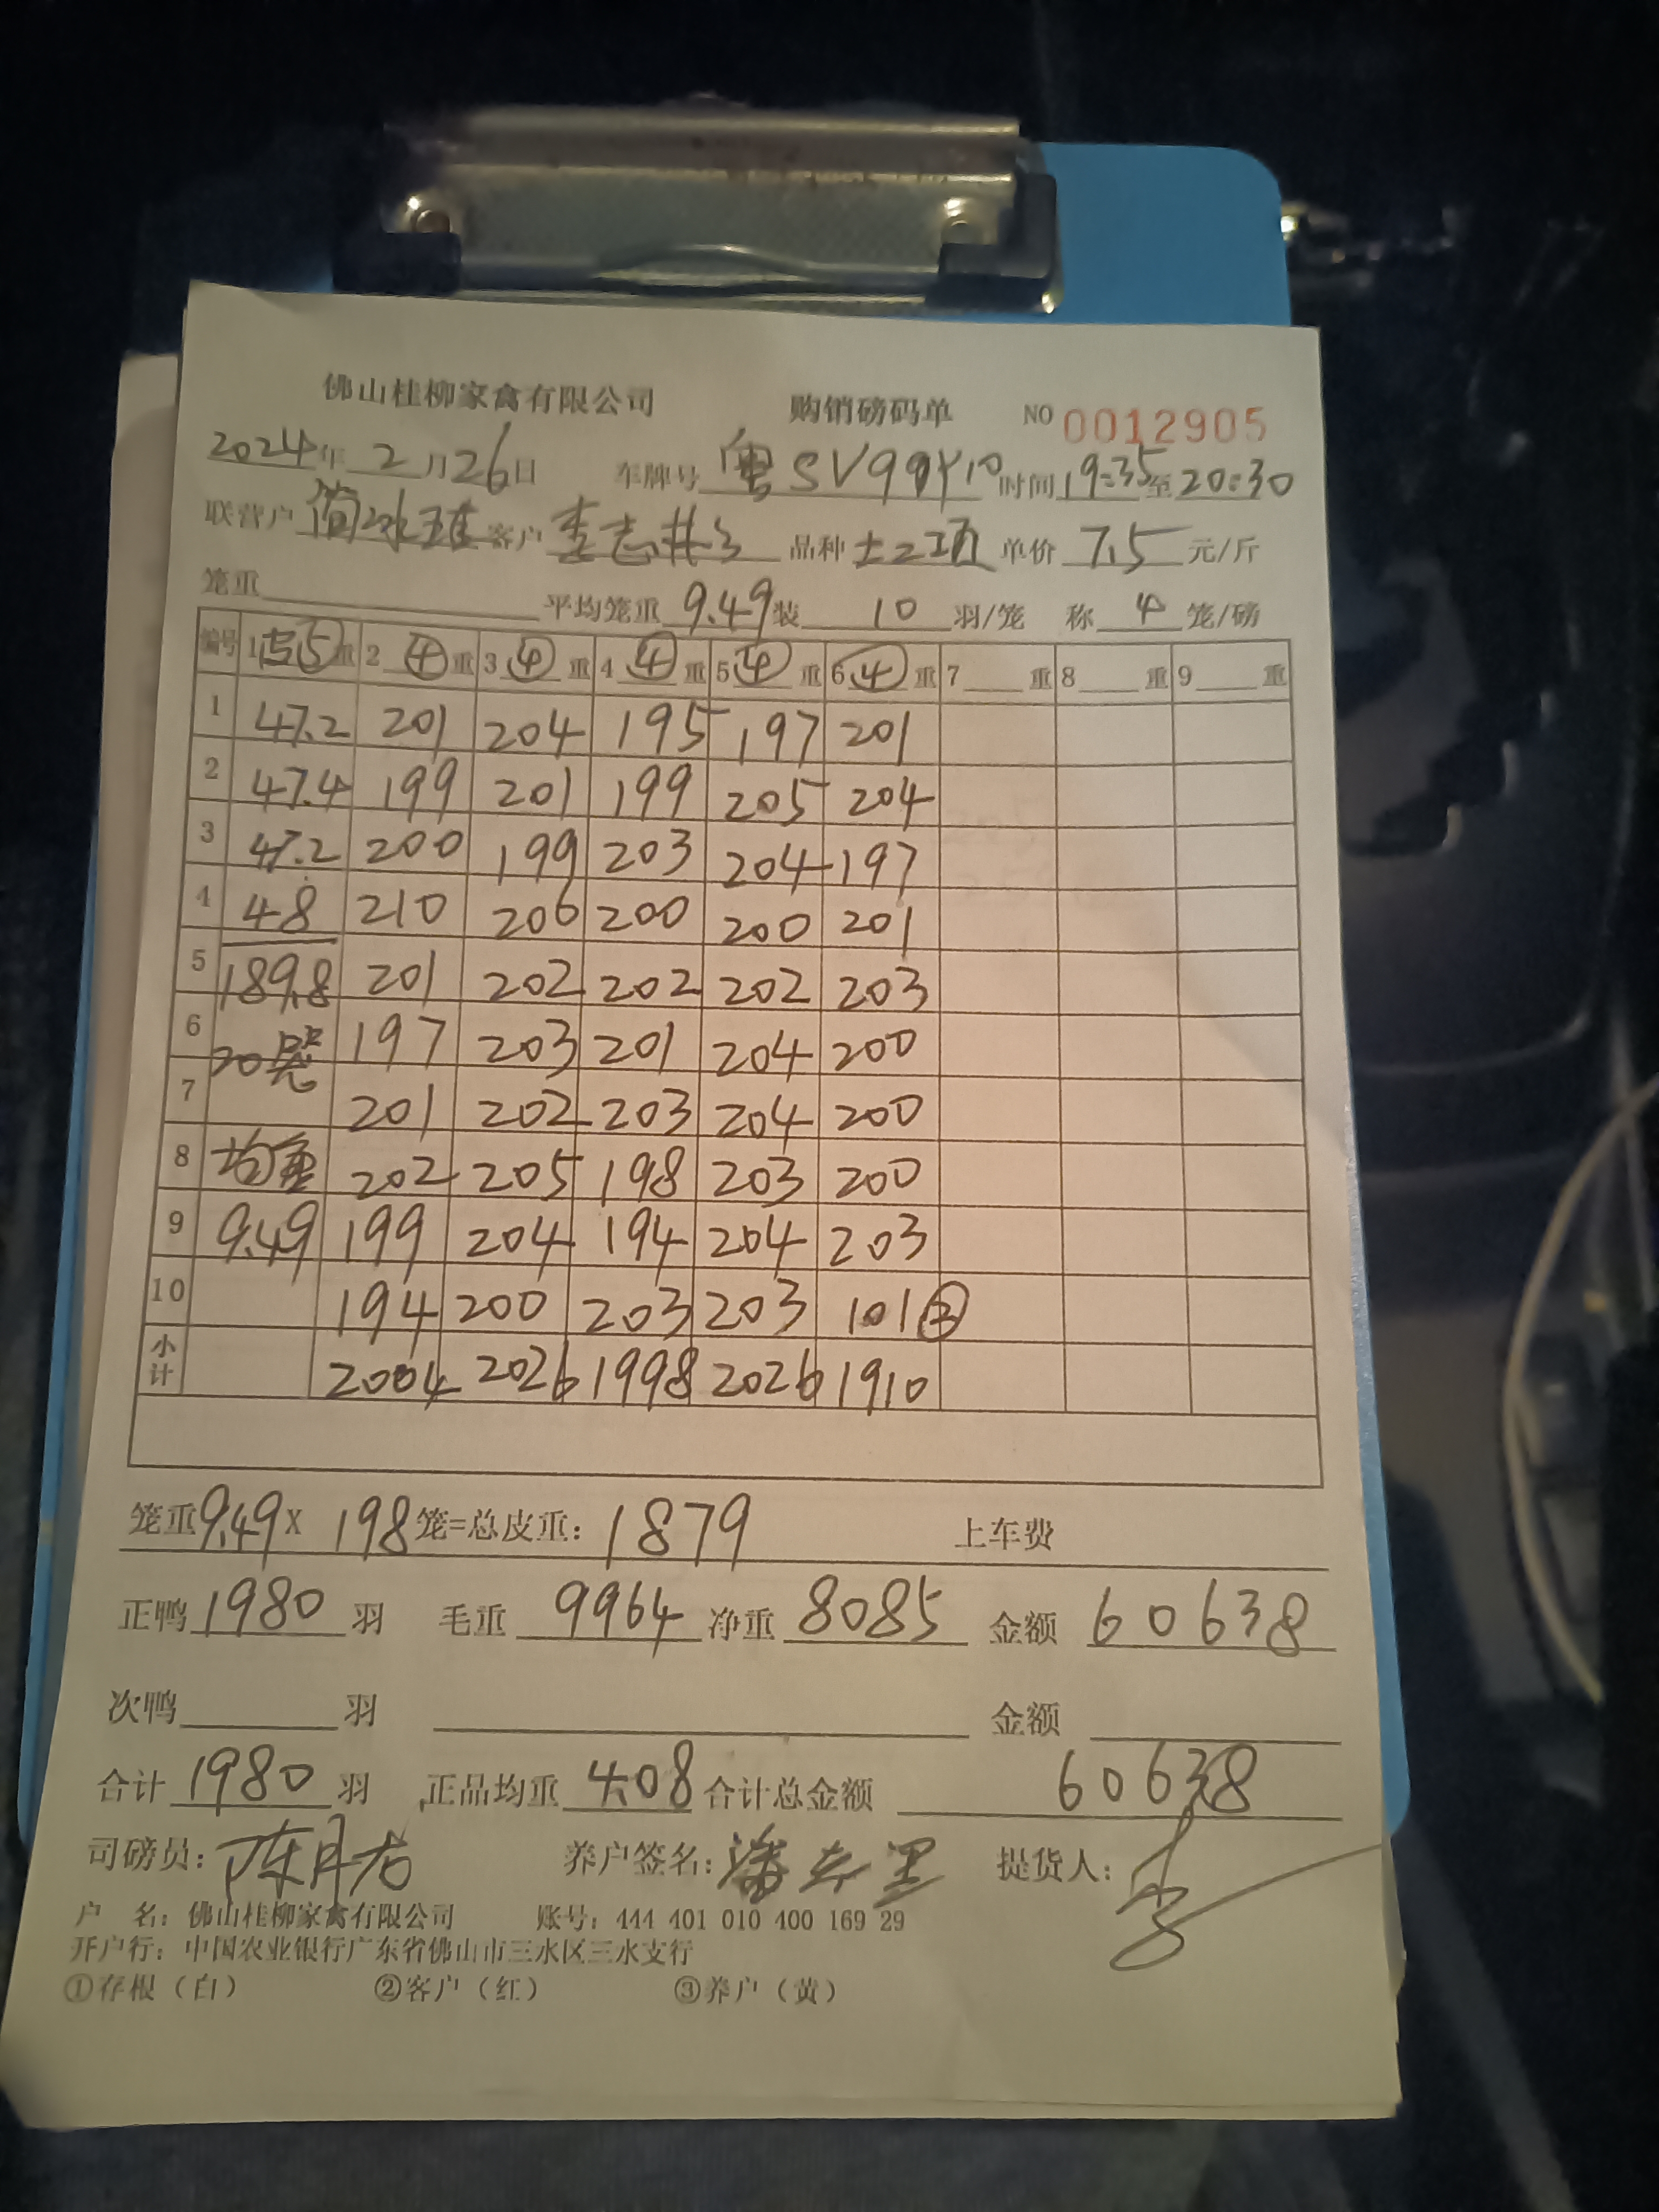 佛山桂柳家禽有限公司 购销磅码单 NO 0012905
2024年 2月26日 车牌号 粤SV99Y10 时间 19:35 至 20:30
联营户 简冰雄 客户 李志 品种 土二项 单价 7.5 元/斤
笼重 平均笼重 9.49 装 10 羽/笼 称 4 笼/磅
编号 1 ⑤ 重 2 ④ 重 3 ④ 重 4 ④ 重 5 ④ 重 6 ④ 重 7 重 8 重 9 重
1 47.2 201 204 195 197 201
2 47.4 199 201 199 205 204
3 47.2 200 199 203 204 197
4 48 210 206 200 200 201
5 189.8 201 202 202 202 203
6 20 197 203 201 204 200
7 201 202 203 204 200
8 均重 202 205 198 203 200
9 9.49 199 204 194 204 203
10 194 200 203 203 101 ②
小计 2004 2026 1998 2026 1910
笼重 9.49 X 198 笼=总皮重: 1879 上车费
正鸭 1980 羽 毛重 9964 净重 8085 金额 60638
次鸭 羽 金额
合计 1980 羽 正品均重 4.08 合计总金额 60638
司磅员: 陈月 养户签名: 潘 提货人:
户 名: 佛山桂柳家禽有限公司 账号: 444 401 010 400 169 29
开户行: 中国农业银行广东省佛山市三水区三水支行
①存根(白) ②客户(红) ③养户(黄)